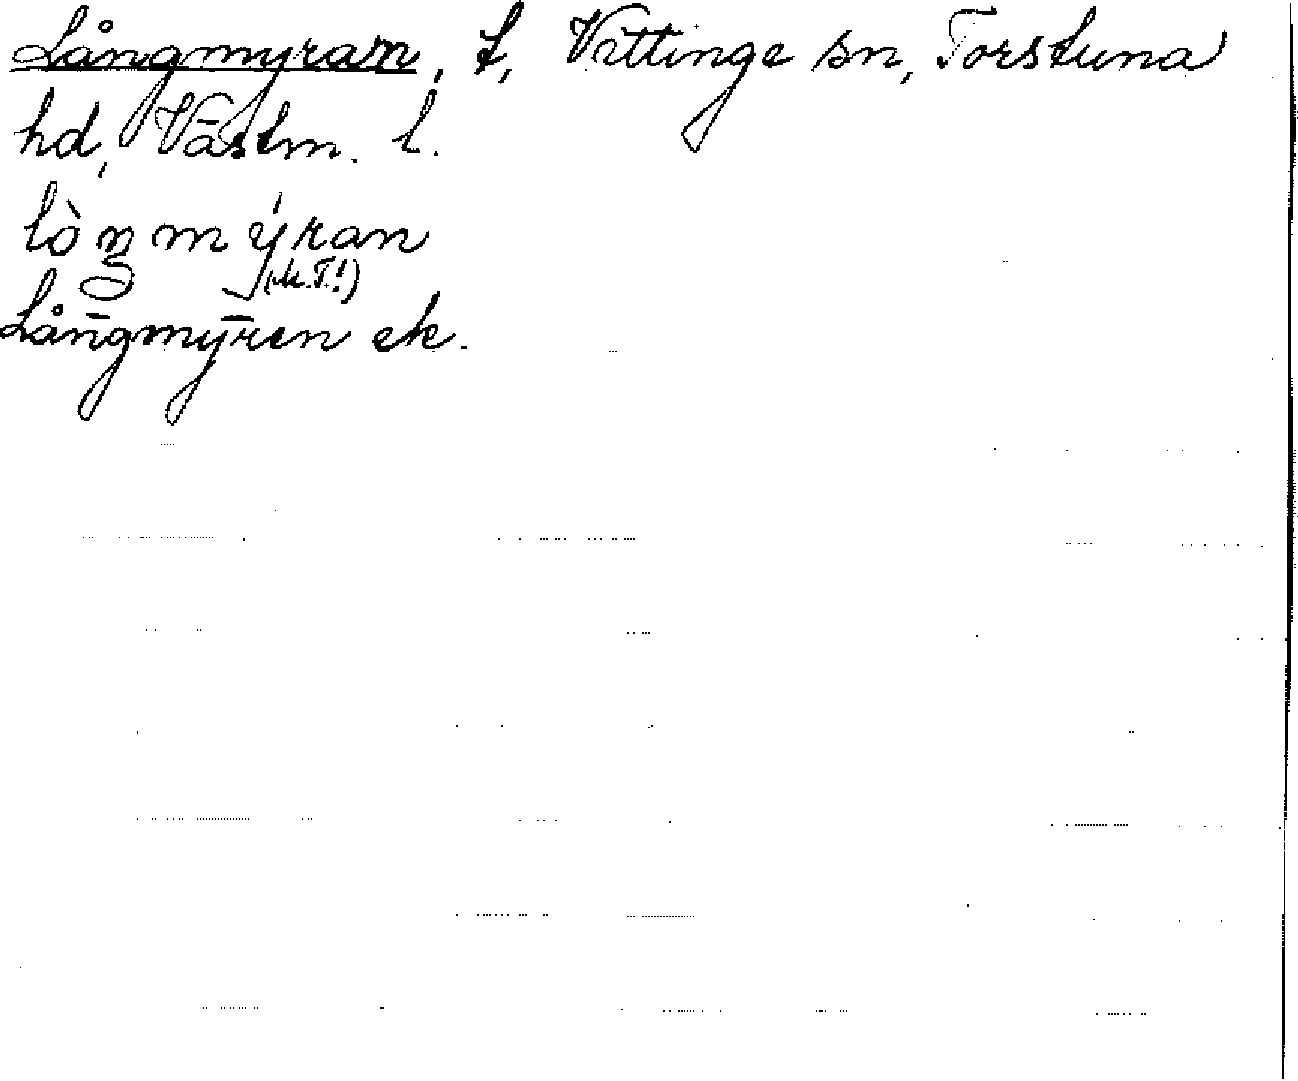 Långmyran, t, Vittinge sn, Torstuna
hd, Västm. l.
lòŋmýran
Långmyren ek.